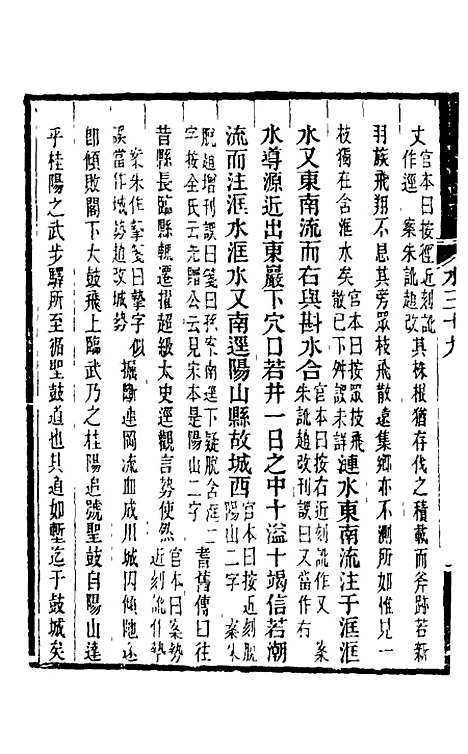 水三十九
丈作逕官本曰按徑近刻訛案朱訛趙改其株根猶存伐之積載而斧跡若新
羽族飛翔不息其旁眾枝飛散遠集鄉亦不測所如惟見一
枝獨在含洭水矣官本曰按眾技飛散已下舛誤未詳漣水東南流注于洭洭
水又東南流而右與斟水合官本曰按右近刻訛作又案朱訛趙改刊誤曰又當作右
水導源近出東巖下穴口若井一日之中十溢十竭信若潮
流而注洭水洭水又南逕陽山縣故城西官本曰按近刻脫陽山二字案朱
脫趙增刊誤曰箋曰孫案南逕下疑脫含洭二字按全氏云先司空見宋本是陽山二字耆舊傳曰往
昔縣長臨縣輒遷擢超級太史逕觀言勢使然官本曰案勢近刻訛作摯
案朱作摯箋曰摯字似誤當作城勢趙改城勢掘斷連岡流血成川城因傾阤遂
即傾敗閣下大鼓飛上臨武乃之桂陽追號聖鼓自陽山達
乎桂陽之武步驛所至循聖鼓道也其道如塹迄于鼓城矣